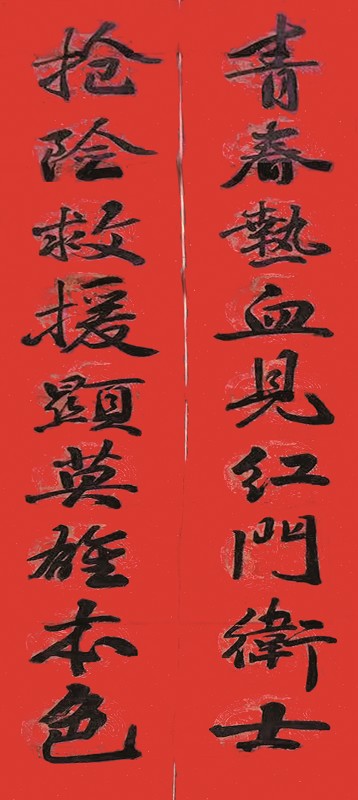 青春熱血見紅門衛士
抢险救援顯英雄本色